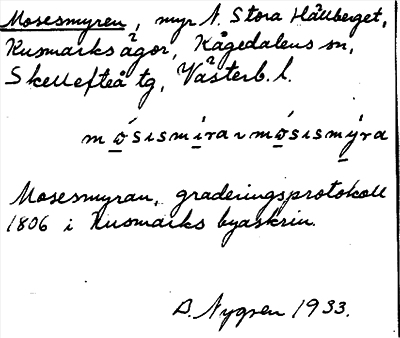 Mosesmyren, myr N. Stora Hällberget,
Kusmarks ägor, Kågedalens sn,
Skellefteå tg, Västerb. l.
mo̲sismi̲ra ı mo̲sismy̲ra
Mosesmyran, graderingsprotokoll
1806 i Kusmarks byaskrin.
D. Nygren 1933.